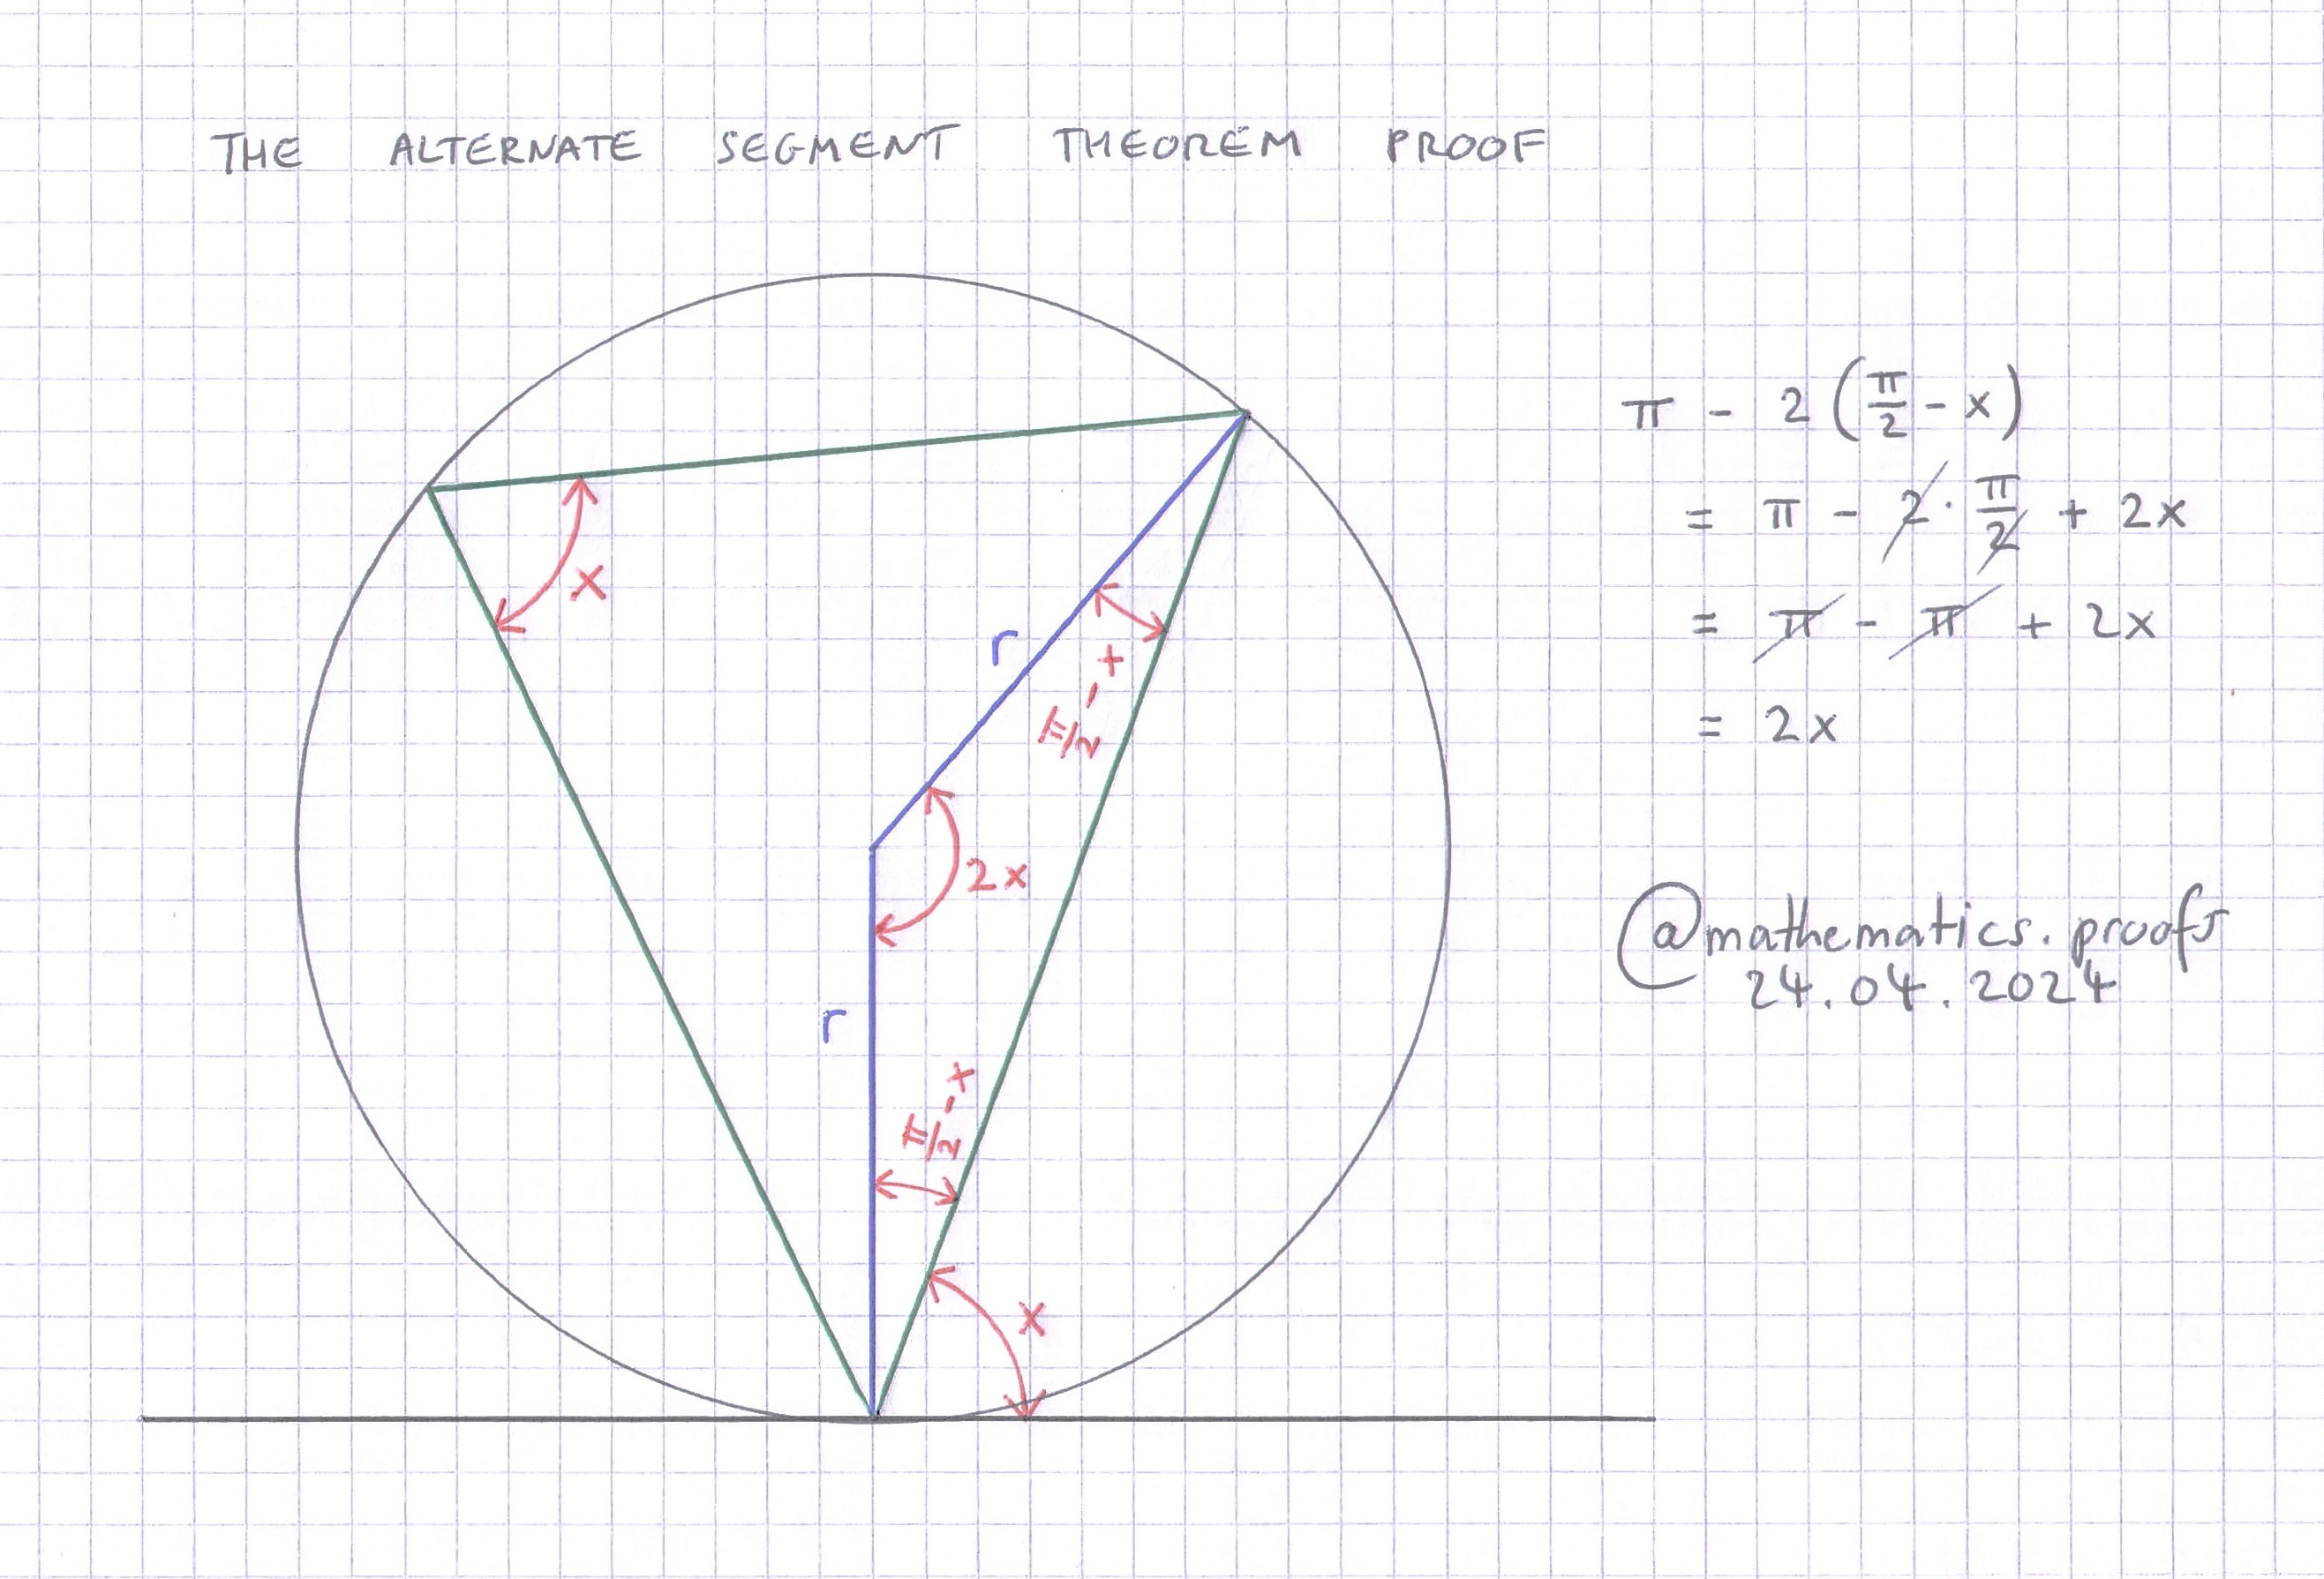 THE ALTERNATE SEGMENT THEOREM PROOF
x
r
π/2 - x
2x
r
π/2 - x
x
π - 2(π/2 - x)
= π - 2 · π/2 + 2x
= π - π + 2x
= 2x
@mathematics.proofs
24.04.2024